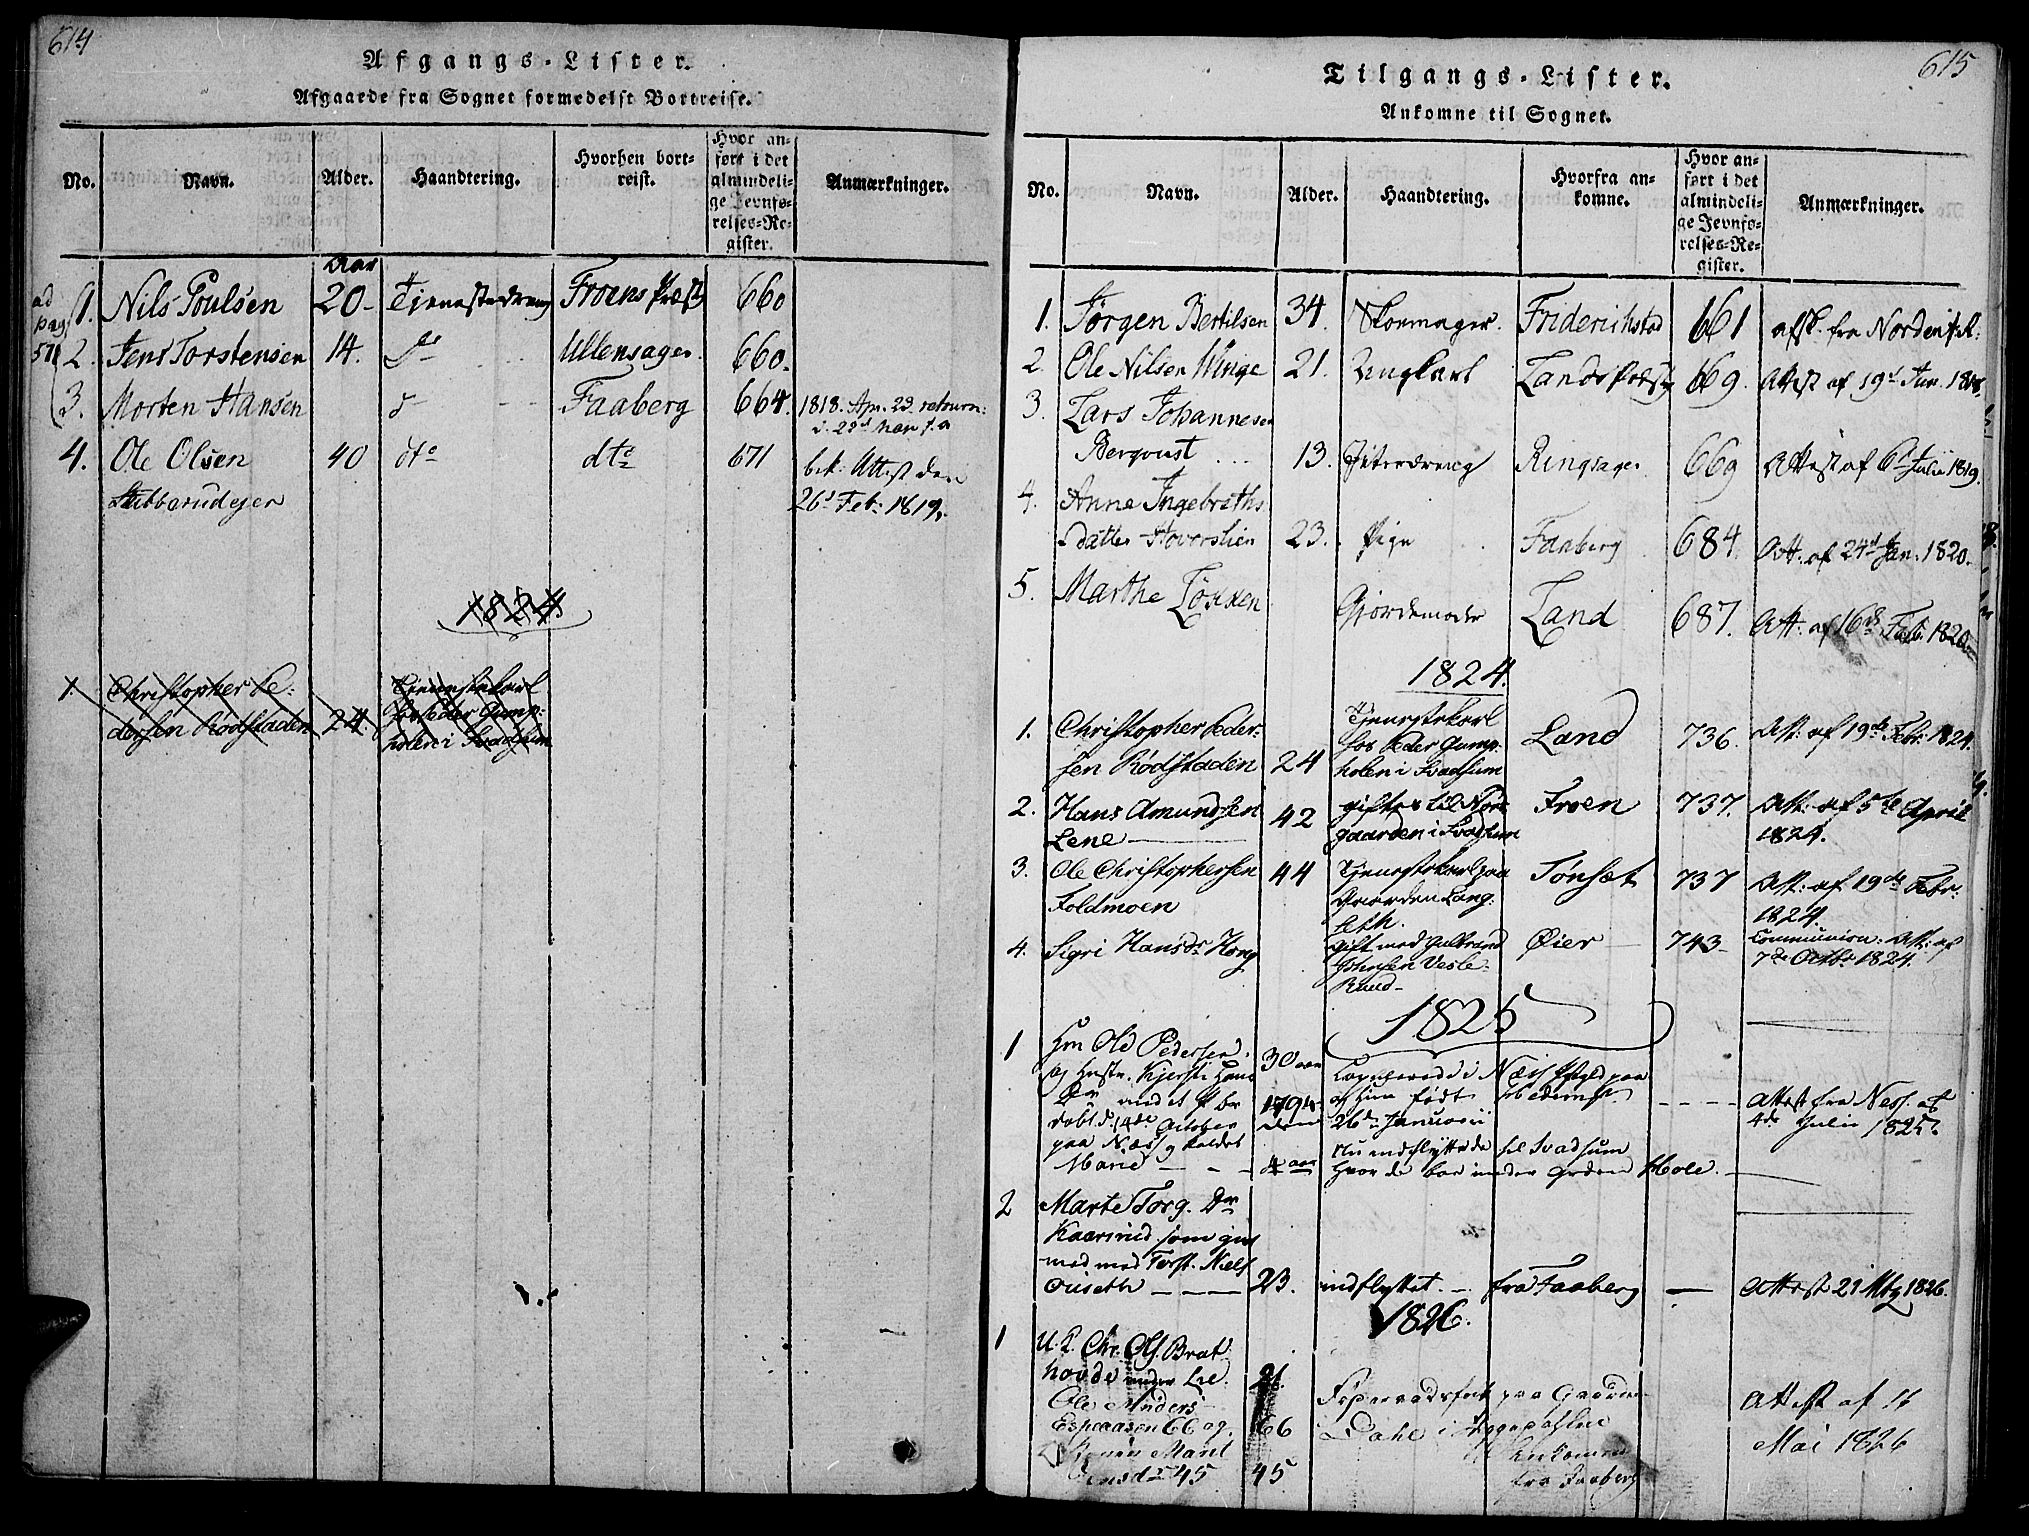 614
Afgangs-Lister.
Afgaarde fra Sognet formedelst Bortreise.
No. Navn. Alder. Haandtering. Hvorhen bortreist. Hvor anført i det almindelige Jevnførelses-Register. Anmærkninger.
Aar
ad pag 57
1. Nils Poulsen 20 Tjenestedreng Froens Præstg 660
2. Jens Torstensen 14. do Ullensager 660.
3. Morten Hansen do Faaberg 664. 1818. Apr. 23. return:
4. Ole Olsen 40 dto dto 671 bek: Attest den
Stubberudejer 26d Feb: 1819.
1824
1 Christopher Pe-
dersen Rødstaden 24 Tjenestekarl
hos Peder Gump-
holen i Svadsum
615
Tilgangs-Lister.
Ankomne til Sognet.
No. Navn. Alder. Haandtering. Hvorfra ankomne. Hvor anført i det almindelige Jevnførelses-Register. Anmærkninger.
1. Jørgen Bertilsen 34. Skomager. Friderichstad 661 afsk. fra Nordenf. R:
2. Ole Nilsen Winge 21. Ungkarl Lands Præstg 669. Attest af 19d Jun. 1818.
3. Lars Johannesen
Berqvust 13. Gjeterdreng Ringsager 669 Attest af 6d Julii 1819.
4. Anne Ingebreths
datter Hoverslien 23. Pige Faaberg 684. Att. af 24d Jan. 1820.
5. Marthe Løkken Gjordemoder Land 687. Att: af 16d Feb. 1820
1824.
1. Christopher Peder-
sen Rødstaden 24 Tjenestekarl
hos Peder Gump-
holen i Svadsum Land 736. Att: af 19de Febr. 1824.
2. Hans Amundsen
Lene 42 giftes til Nør-
gaarden i Svadsum Froen 737. Att: af 5te April
1824.
3. Ole Christophersen
Foldmoen 44 Tjenestekarl paa
Gaarden Lang-
seth. Tønset 737 Att: af 19de Febr:
1824.
4. Sigri Hansdr Hong gift med Gulbrand
Johnsen Vesle-
Ruud Øier 743 Communion: Att: af
7de Octbr 1824.
1825
1 Hm Ole Pedersen 30 aar
og Hustr. Kjersti Hans
Dr med et P. br 1794
døbt d. 14de October
paa Næss, kaldet
Marie 4 aar
Copulerede i Næss Præstgjeld paa
og hun født sstedems.
26de Januarii
Nu indflyttede til Svadsum
hvor de boe under Grden Hole.
Attest fra Ness. af
4de Julii 1825.
2 Marte Torg. Dr
Kaarsrud. som giv
med med Torst. Niels
Ouseth 23. indflyttet fra Faaberg Attest 21 Mtz 1826.
1826.
1 U. K. Chr. Ols. Brat
hovde under Lie. 21
Ole Anders
Espeaasen 66 og 66
Konen Marit
Jensdr 45 45.
paa Gaarden
Dahl i
Ankomne
fra Faaberg
Attest af 16
Mai 1826